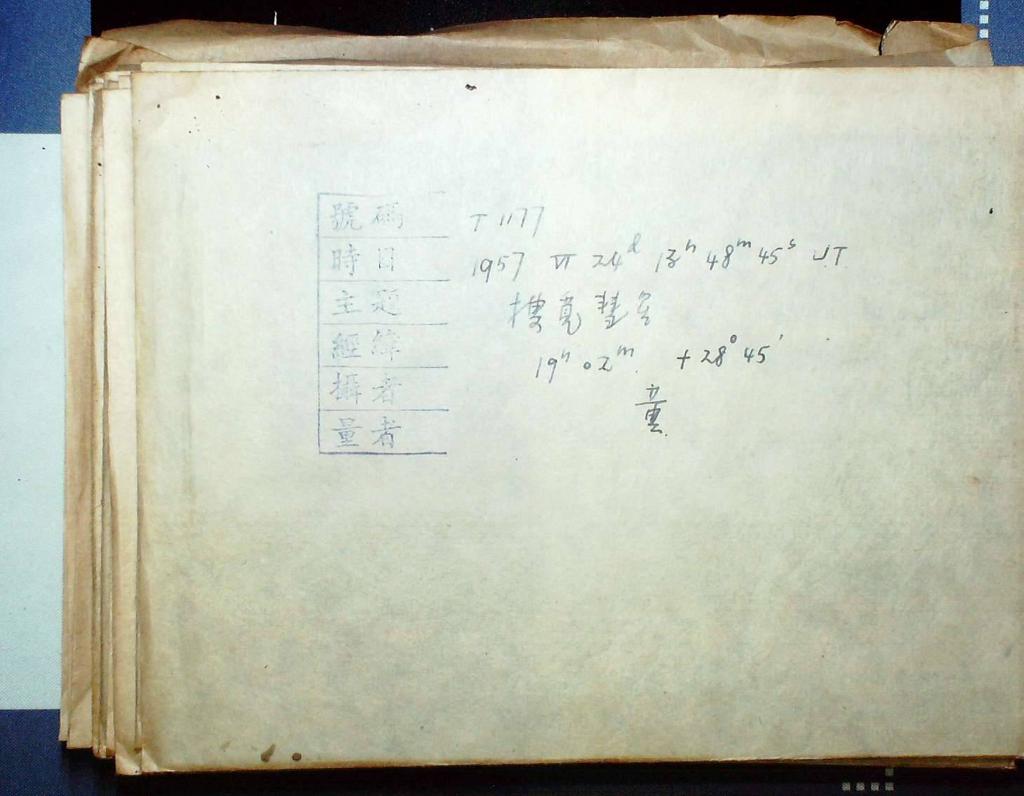 號碼 T 1177
時日 1957 VI 24d 13h 48m 45s UT
主題 搜覓彗星
經緯 19h 02m. +28° 45'
攝者
量者